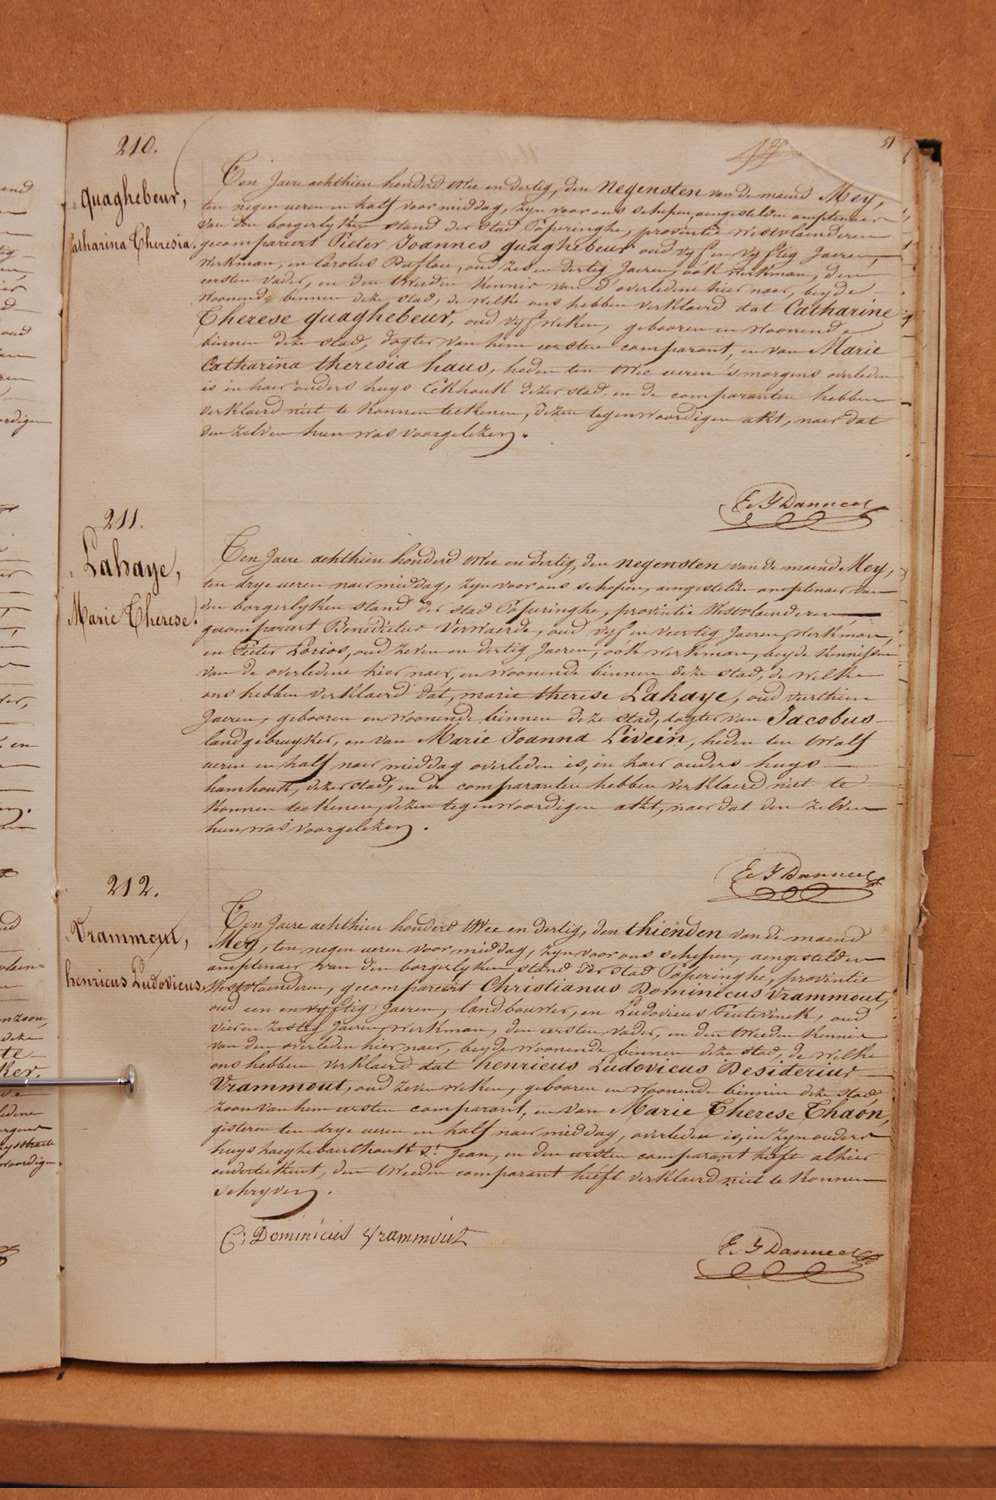 51
210.
Quaghebeur,
Catharina Theresia.
Ten Jaere achthien honderd twee en dertig, den Negensten van de maend Mey,
ten negen ueren en half voor middag, zyn voor ons schepen, aengestelden amptenaer
van den borgerlyken stand der stad Poperinghe, provintie Westvlaenderen
gecompareert Pieter Joannes quaghebeur oud vyf en vyftig Jaeren,
werkman, en Carolus oud zes en dertig Jaeren, ook werkman, den
eersten vader, en den tweeden kennis van d'overledene hier naer, beyde
woonende binnen deze stad, de welke ons hebben verklaerd dat Catharine
Therese quaghebeur, oud vyf weken, gebooren en woonende
binnen deze stad, dogter van hem eersten comparant, en van Marie
Catharina theresia haus, heden ten twee ueren 's morgens overleden
is in haer ouders huys Eekhoutt dezer stad, en de comparanten hebben
verklaerd niet te konnen teekenen, dezen tegenwoordigen akt, naer dat
den zelven hun was voorgelezen.
211.
Lahaye,
Marie Therese.
Ten Jaere achthien honderd twee en dertig, den negensten van de maend Mey,
ten drye ueren naer middag, zyn voor ons schepen, aengestelden amptenaer van
den borgerlyken stand der stad Poperinghe, provintie Westvlaenderen
gecompareert Benedictus Verwaerde, oud vyf en veertig Jaeren, werkman,
en Pieter Lorios, oud zeven en dertig Jaeren, ook werkman, beyde kennissen
van de overledene hier naer, en woonende binnen deze stad, de welke
ons hebben verklaerd dat, marie therese Lahaye, oud veerthien
Jaeren, gebooren en woonende binnen deze stad, dogter van Jacobus
landgebruyker, en van Marie Joanna Livein, heden ten twalf
ueren en half naer middag overleden is, in haer ouders huys
hamhoutt, dezer stad, en de comparanten hebben verklaerd niet te
konnen teekenen, dezen tegenwoordigen akt, naer dat den zelven
hun was voorgelezen.
212.
Vrammout,
henricus Ludovicus.
Ten Jaere achthien honderd twee en dertig, den thienden van de maend
Mey, ten negen ueren voor middag, zyn voor ons schepen, aengestelden
amptenaer van den borgerlyken stand der stad Poperinghe, provintie
Westvlaenderen, gecompareert Christianus Dominicus Vrammout,
oud een en vyftig Jaeren, landbouwer, en Ludovicus oud
vier en zestig Jaeren, werkman, den eersten vader, en den tweeden kennis
van den overleden hier naer, beyde woonende binnen deze stad, de welke
ons hebben verklaerd dat henricus Ludovicus Desiderius
Vrammout, oud zeven weken, gebooren en woonende binnen deze stad
zoon van hem eersten comparant, en van Marie Therese Thaon,
gisteren ten drye ueren en half naer middag, overleden is, in zyn ouders
huys St. Jean, en den eersten comparant heeft alhier
onderteekent, den tweeden comparant heeft verklaerd niet te konnen
schryven.
C: Dominicus Vrammout